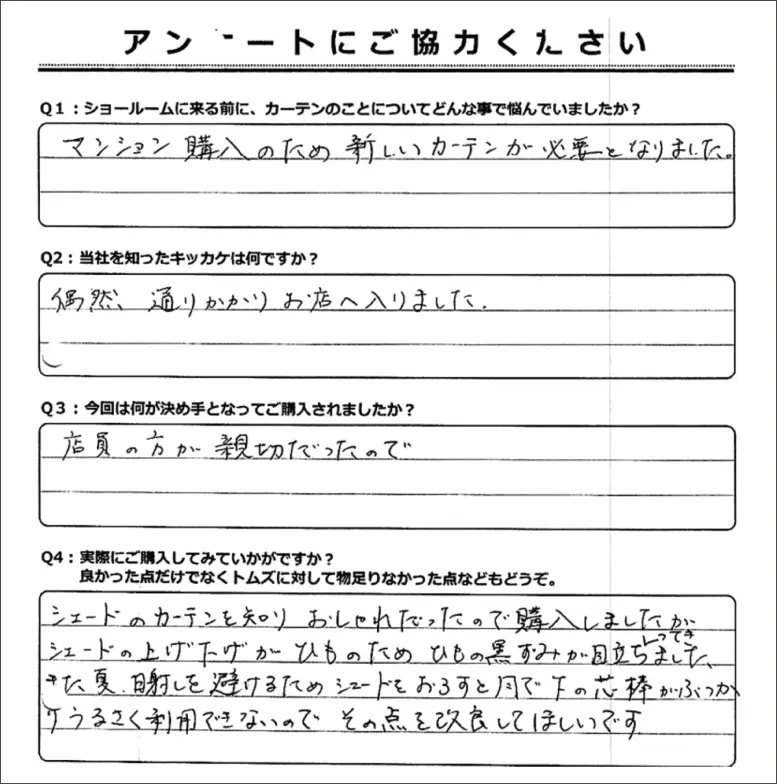 アンートにご協力ください
Q1：ショールームに来る前に、カーテンのことについてどんな事で悩んでいましたか？
マンション購入のため新しいカーテンが必要となりました。
Q2：当社を知ったキッカケは何ですか？
偶然、通りかかりお店へ入りました.
Q3：今回は何が決め手となってご購入されましたか？
店員の方が親切だったので
Q4：実際にご購入してみていかがですか？
良かった点だけでなくトムズに対して物足りなかった点などもどうぞ。
シェードのカーテンを知りおしゃれだったので購入しましたが
シェードの上げ下げがひものためひもの黒ずみが目立ってきました、
また夏、日射しを避けるためシェードをおろすと風で下の芯棒がぶつか
りうるさく利用できないのでその点を改良してほしいです